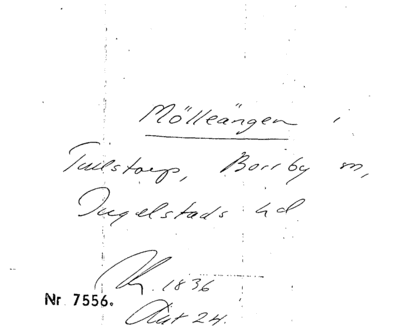 Mölleängen i
Tulstorp, Borrby sn,
Ingelstads hd
1836
Nr 7556.
Akt 24.